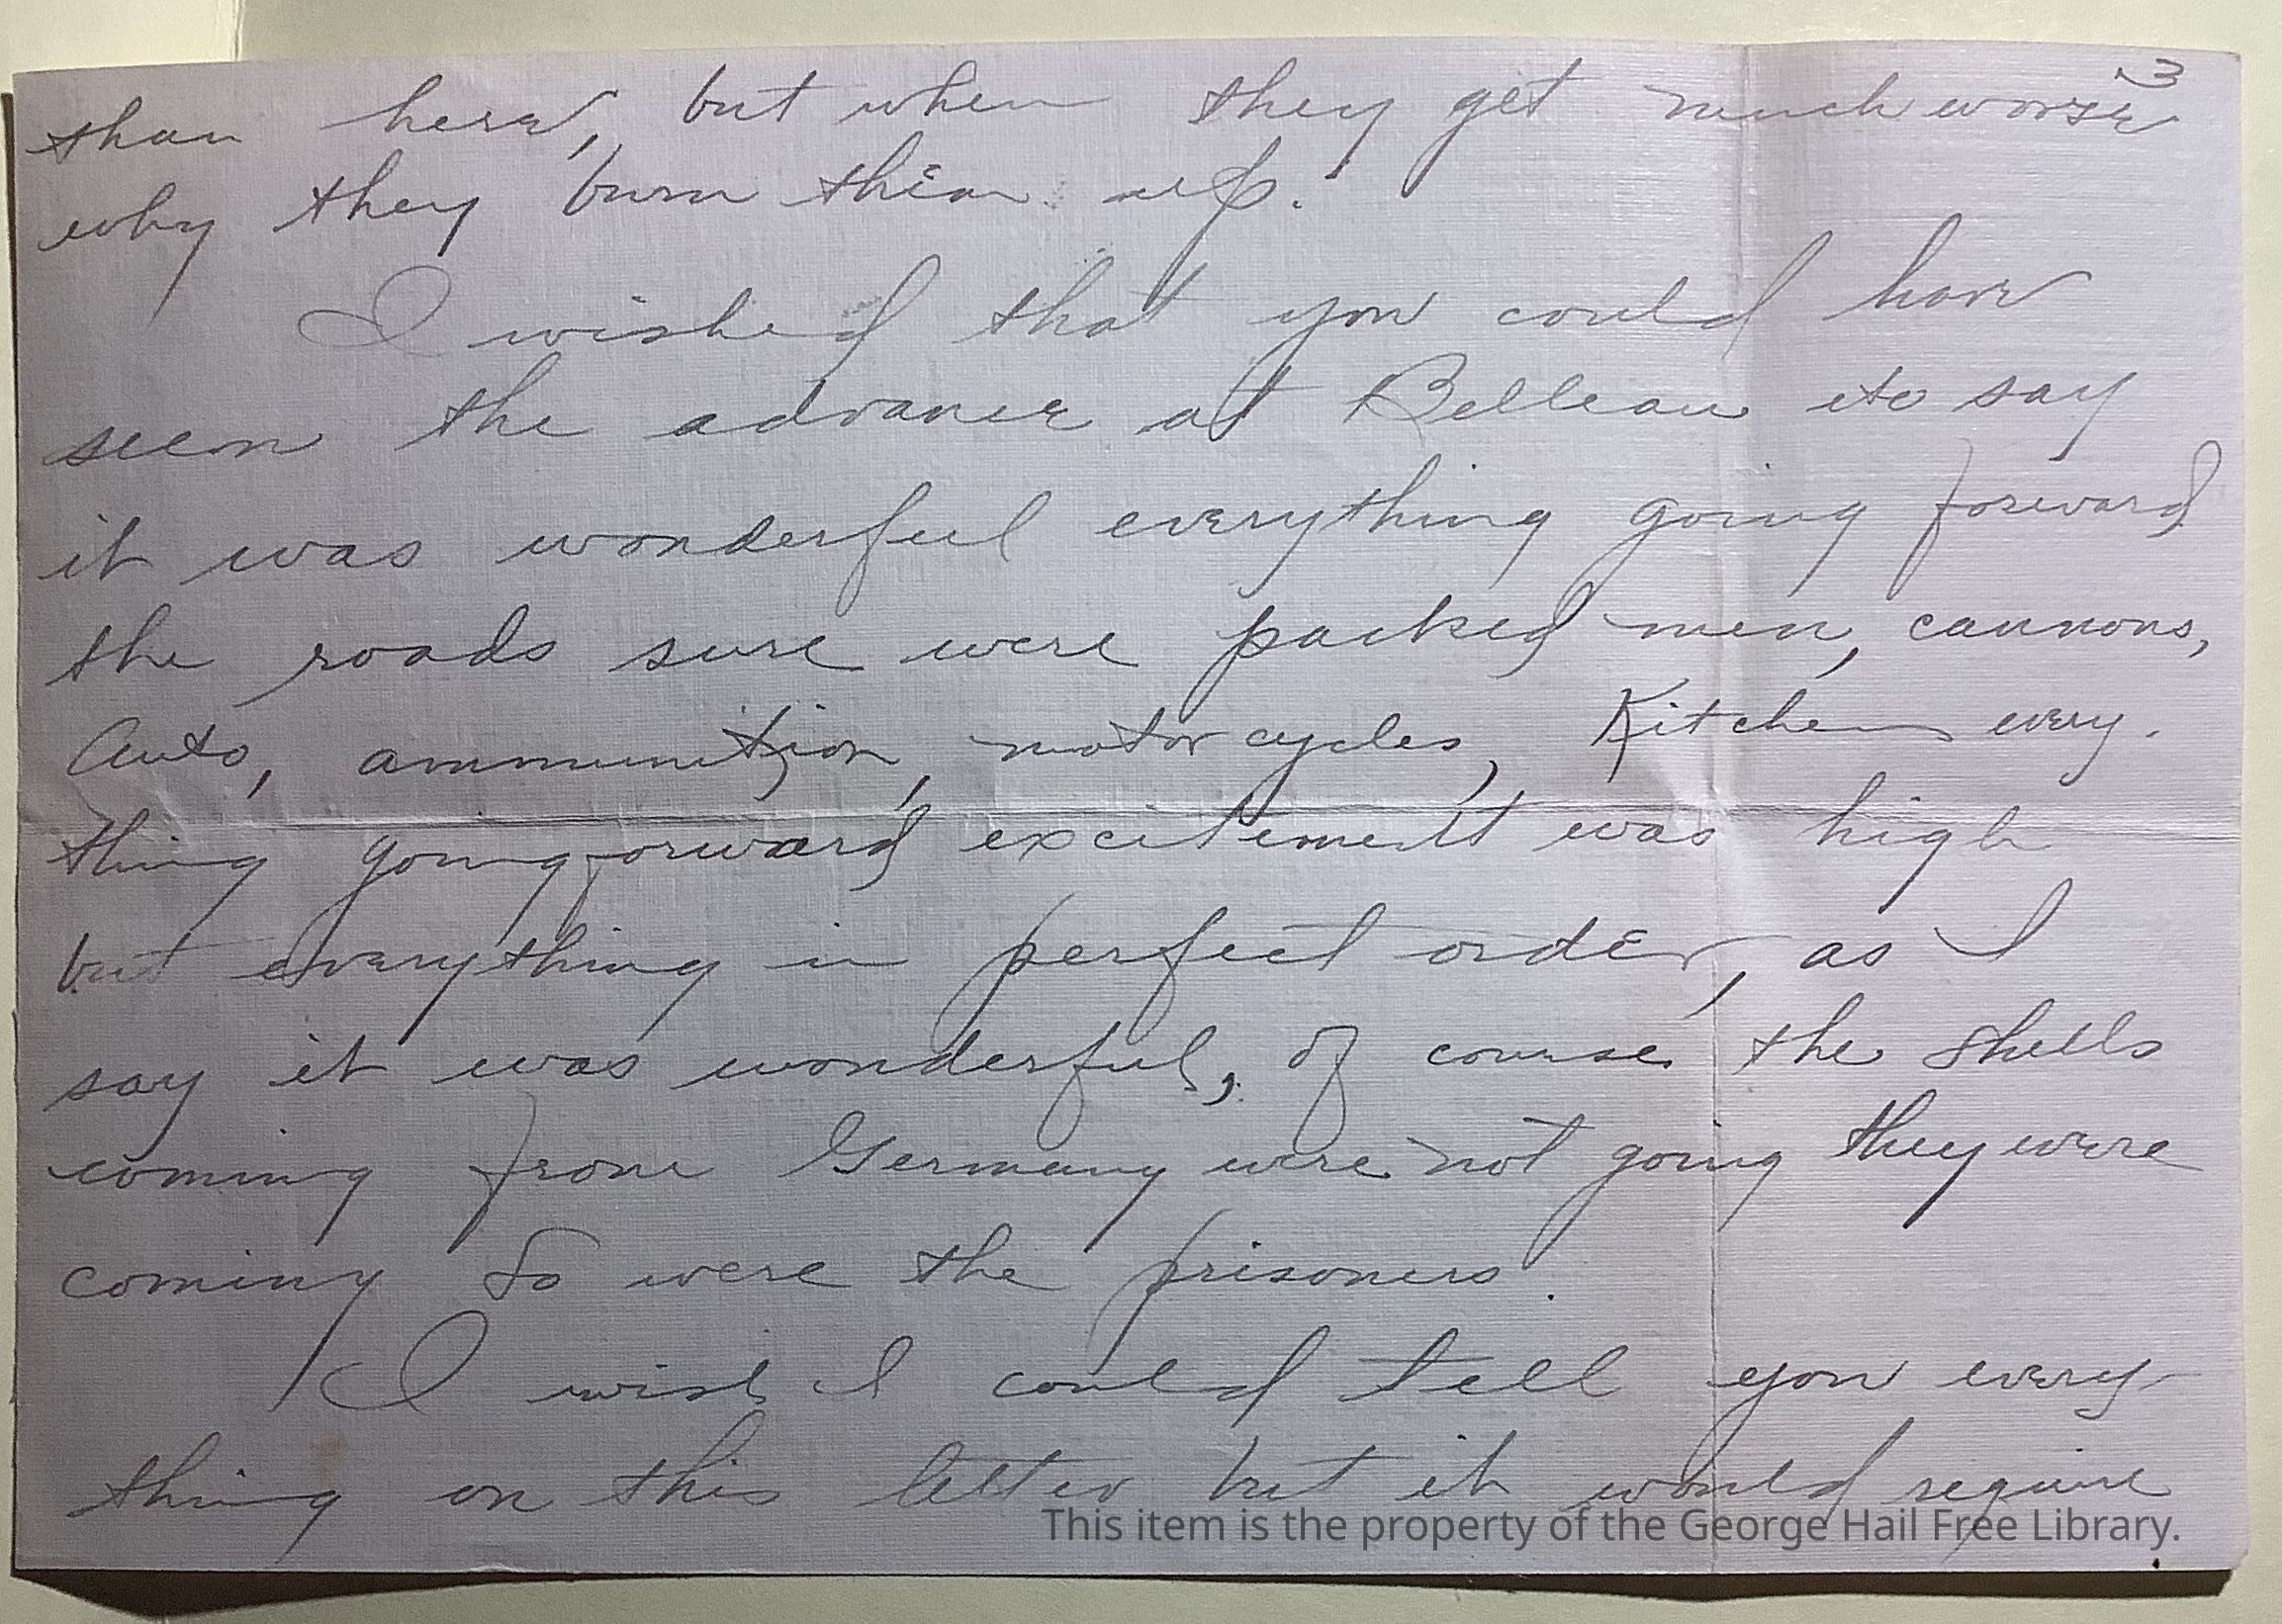 3
than here, but when they get much worse
why they burn them up.
I wished that you could have
seen the advance at Belleau to say
it was wonderful everything going forward
the roads sure were packed men, cannons,
Auto, ammunition, motor cycles, Kitchen every.
thing going forward excitement was high
but everything in perfect order, as I
say it was wonderful, of course the shells
coming from Germany were not going they were
coming So were the prisoners.
I wish I could tell you every-
thing on this letter but it would require
This item is the property of the George Hail Free Library.